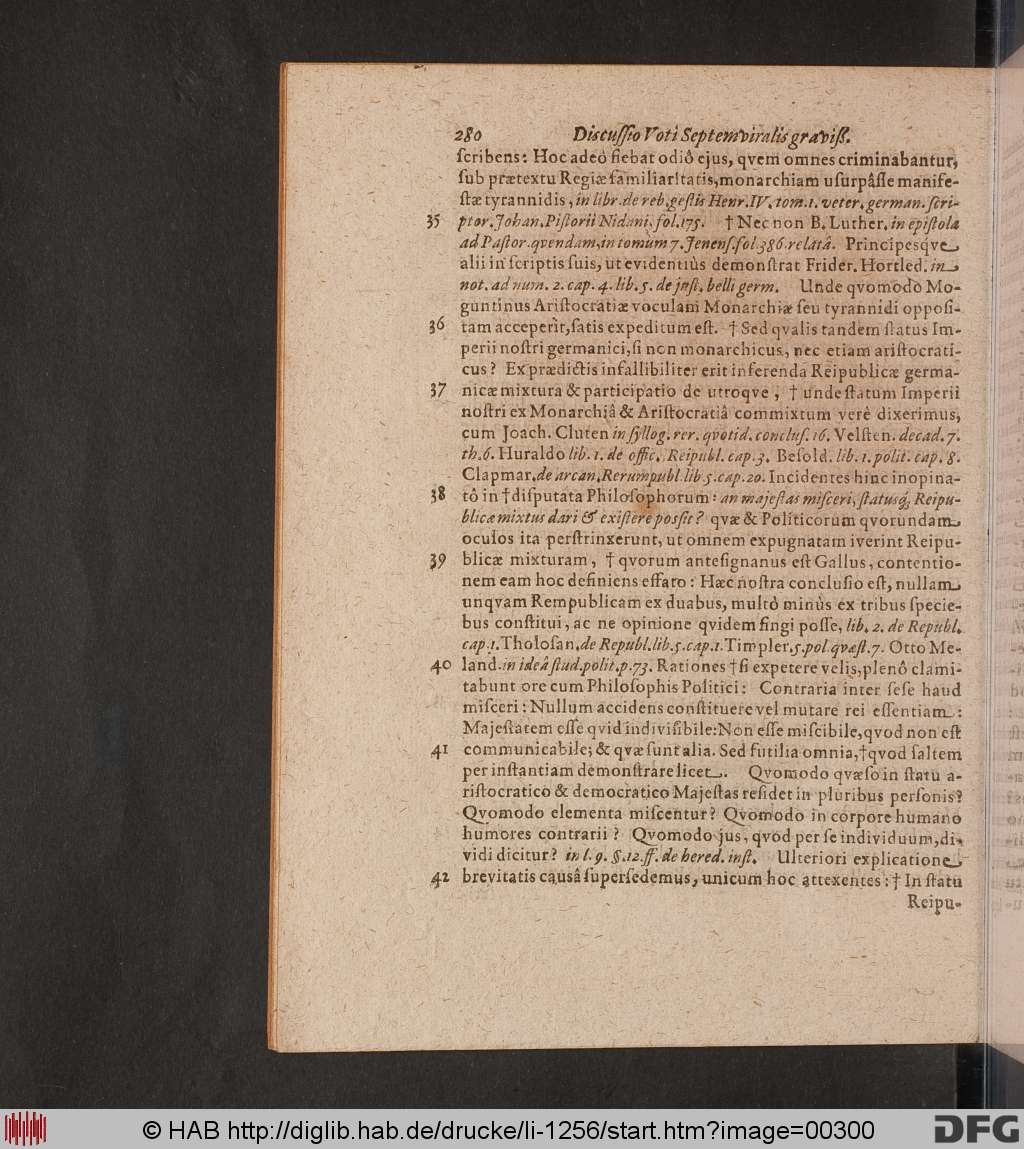 280 Discuſſio Voti Septemviralis graviß.
ſcribens: Hoc adeò fiebat odiô ejus, qvem omnes criminabantur,
ſub prætextu Regiæ familiaritatis, monarchiam uſurpâſſe manife-
ſtæ tyrannidis, in libr. de reb. geſtis Henr. IV. tom. 1. veter. german. ſcri-
35 ptor. Johan. Piſtorii Nidani, fol. 175. † Nec non B. Luther. in epiſtola
ad Paſtor. qvendam, in tomùm 7. Jenenſ. fol. 386. relatâ. Principesqve
alii in ſcriptis ſuis, ut evidentiùs demonſtrat Frider. Hortled. in
not. ad num. 2. cap. 4. lib. 5. de juſt. belli germ. Unde qvomodò Mo-
guntinus Ariſtocratiæ voculam Monarchiæ ſeu tyrannidi oppoſi-
36 tam acceperit, ſatis expeditum eſt. † Sed qvalis tandem ſtatus Im-
perii noſtri germanici, ſi non monarchicus, nec etiam ariſtocrati-
cus? Ex prædictis infallibiliter erit inferenda Reipublicæ germa-
37 nicæ mixtura & participatio de utroqve, † unde ſtatum Imperii
noſtri ex Monarchiâ & Ariſtocratiâ commixtum verè dixerimus,
cum Joach. Cluten in ſyllog. rer. qvotid. concluſ. 16. Velſten. decad. 7.
th. 6. Huraldo lib. 1. de offic. Reipubl. cap. 3. Beſold. lib. 1. polit. cap. 8.
Clapmar. de arcan. Rerumpubl. lib. 5. cap. 20. Incidentes hinc inopina-
38 tô in † diſputata Philoſophorum: an majeſtas miſceri, ſtatusq́; Reipu-
blicæ mixtus dari & exiſtere poſſit? qvæ & Politicorum qvorundam
oculos ita perſtrinxerunt, ut omnem expugnatam iverint Reipu-
39 blicæ mixturam, † qvorum anteſignanus eſt Gallus, contentio-
nem eam hoc definiens effato: Hæc noſtra concluſio eſt, nullam
unqvam Rempublicam ex duabus, multò minùs ex tribus ſpecie-
bus conſtitui, ac ne opinione qvidem fingi poſſe, lib. 2. de Republ.
cap. 1. Tholoſan. de Republ. lib. 5. cap. 1. Timpler. 5. pol. qvæſt. 7. Otto Me-
40 land. in ideâ ſtud. polit. p. 73. Rationes † ſi expetere velis, plenô clami-
tabunt ore cum Philoſophis Politici: Contraria inter ſeſe haud
miſceri: Nullum accidens conſtituere vel mutare rei eſſentiam:
Majeſtatem eſſe qvid indiviſibile: Non eſſe miſcibile, qvod non eſt
41 communicabile; & qvæ ſunt alia. Sed futilia omnia, † qvod ſaltem
per inſtantiam demonſtrare licet. Qvomodo qvæſo in ſtatu a-
riſtocratico & democratico Majeſtas reſidet in pluribus perſonis?
Qvomodo elementa miſcentur? Qvomodo in corpore humano
humores contrarii? Qvomodo jus, qvod per ſe individuum, di-
vidi dicitur? in l. 9. §. 12. ff. de hered. inſt. Ulteriori explicatione
42 brevitatis causâ ſuperſedemus, unicum hoc attexentes: † In ſtatu
Reipu-
© HAB http://diglib.hab.de/drucke/li-1256/start.htm?image=00300
DFG